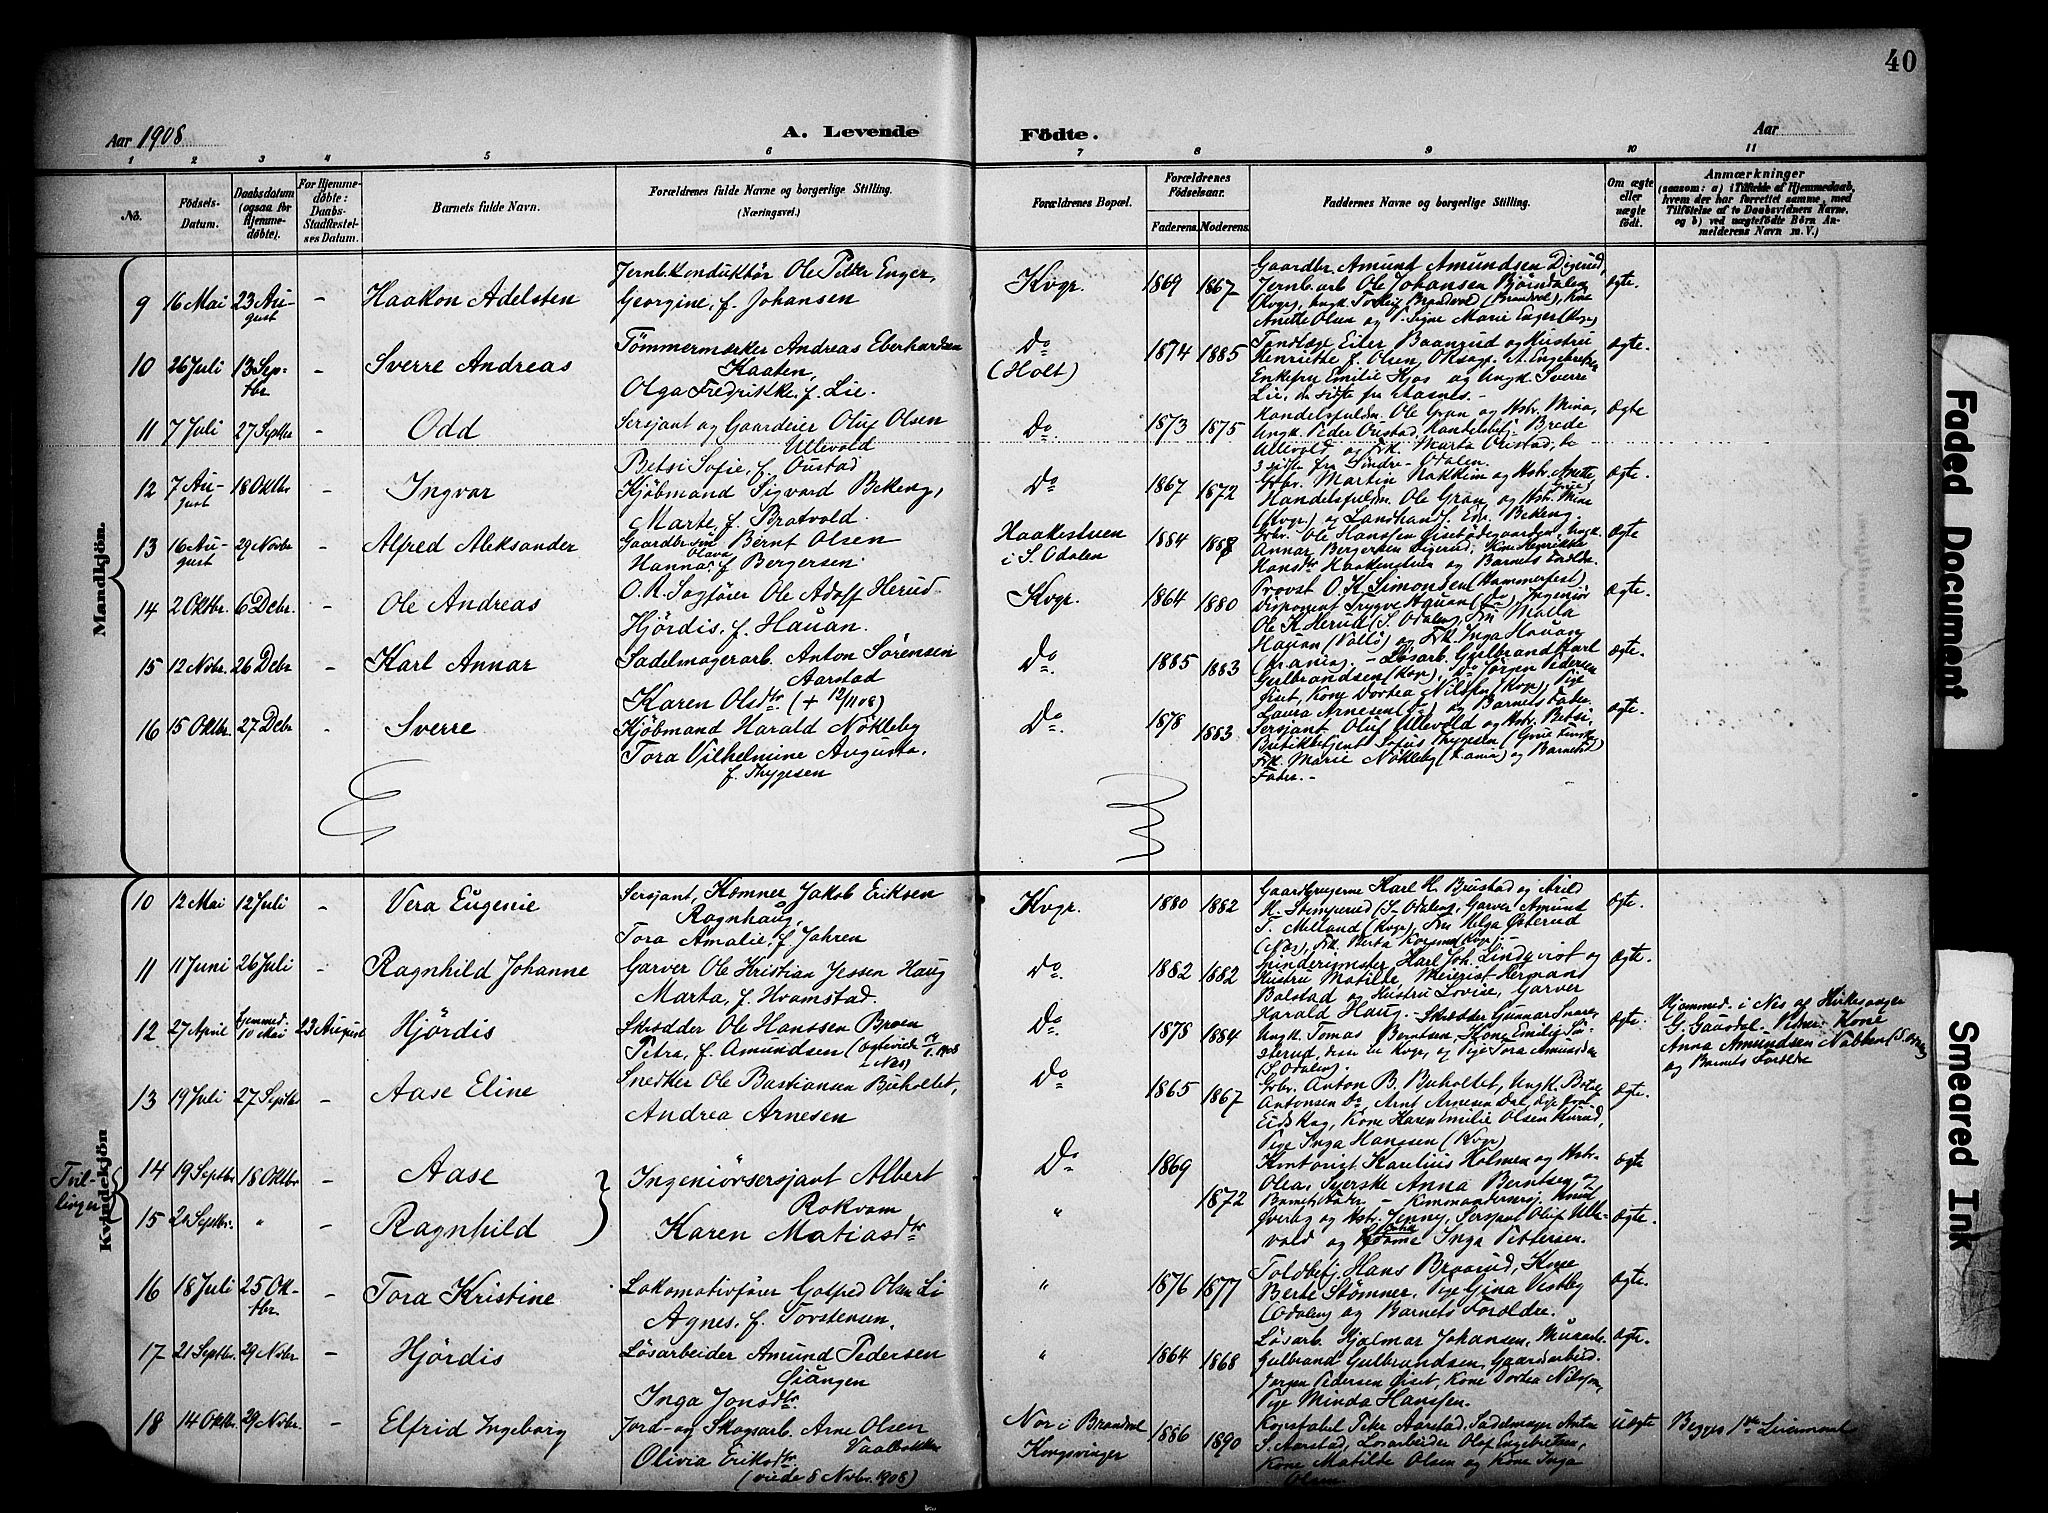 40
Aar 1908
A. Levende
Födte.
Aar
1 2 3 4 5 6 7 8 9 10 11
No.
Födsels-Datum.
Daabsdatum (ogsaa for Hjemmedöbte).
For Hjemmedöbte: Daabs-Stadfæstelses Datum.
Barnets fulde Navn.
Forældrenes fulde Navne og borgerlige Stilling.
(Næringsvei.)
Forældrenes Bopæl.
Forældrenes Födselsaar.
Faderens. Moderens.
Faddernes Navne og borgerlige Stilling.
Om ægte eller uægte födt.
Anmærkninger
(saasom: a) i Tilfælde af Hjemmedaab, hvem der har forrettet samme, med Tilföielse af to Daabsvidners Navne, og b) ved uægtefödte Börn Anmelderens Navn m. V.)
Mandkjön.
9 16 Mai 23 August - Haakon Adelsten
Jernb.konduktör Ole Petter Enger,
Georgine, f. Johansen
Kvgr. 1869 1867
Gaardbr. Amund Amundsen Digerud,
Jernb.arb Ole Johansen Björndalen
Anette Olsen og P. Signe Marie Enger (Kvgr)
ægte.
10 26 Juli 13 Septbr - Sverre Andreas
Tömmermærker Andreas Eberhardsen
Kaaten,
Olga Fredrikke, f. Lie.
Do (Holt) 1874 1885
Tandlæge Eiler Baangrud og Hustru
Henriette f. Olsen, Oksagf. A. Engebretsen
Enkefru Emilie Kjos og Ungk. Sverre
Lie, de sidste fra Aasnes.-
ægte.
11 7 Juli 27 Septbr - Odd
Sersjant og Gaardeier Oluf Olsen
Ullevold
Betsi Sofie, f. Oustad
Do. 1873 1875
Handelsfuldm. Ole Gran og Hstr. Mina,
Ungk. Peder Oustad Handelsbetj. Brede
Ullevold og Frk. Marta Oustad, de
3 sidste fra Söndre-Odalen.
Ægte
12 7 August 18 Oktbr - Ingvar
Kjöbmand Sigvard Bekeng,
Marte, f. Bratvold.
Do 1867 1872
Gbr. Martin Nakkim og Hstr. Anette
Handelsfuldm. Ole Gran, og Hstr. Mina
(Kvgr) og Landhand. Edv. Bekeng.
ægte.
13 16 August 29 Novbr - Alfred Aleksander
Gaardbr.sön Bernt Olsen
Hanna Olava f. Bergersen.
Haakestuen i S. Odalen 1884 1887
Gbr. Ole Hanssen Gisetödegaarden, Ungk.
Annar Bergersen Digerud, Kone Henrikke
Hansdtr Haakenstuen og Barnets Foreldre.
ægte
14 2 Oktbr. 6 Debr. - Ole Andreas
O.R. Sagförer Ole Adolf Herud
Hjördis, f. Hauan.
Kvgr. 1864 1880
Provst O. K. Simonsen (Hammerfest)
Disponent Trygve Aquan (Do), Ingeniör
Ole K. Herud (S. Odalen), Fru Marla
Hauan (Vallö) og Frk. Inga Hauan
ægte.
15 12 Novbr. 26 Debr - Karl Annar
Sadelmagerarb. Anton Sörensen
Aarstad
Karen Olsdtr. (+ 12/11 08)
Do 1885 1883
Lösarb. Gulbrand Karl
Gulbrandsen (Kvgr), Do Jörgen Pedersen
Giset, Kone Dortea Nilsen (Kvgr), Pige
Laura Arnesen og Barnets Fader
ægte.
16 15 Oktbr. 27 Debr - Sverre
Kjöbmand Harald Nökleby
Tora Vilhelmine Augusta.
f. Thygesen
Do. 1878 1883
Sersjant Oluf Ullevold og Hstr. Betsi,
Butikbetjent Sofus Thygesen
Frk. Marie Nökleby og Barnets
Fader.-
ægte.
Kvindekjön
10 12 Mai 12 Juli - Vera Eugenie
Sersjant, Kemner Jakob Eriksen
Ragnhaug,
Tora Amalie, f. Jahren
Kvgr. 1880 1882
Gaardbrugerne Karl H. Brustad og Arild
H. Stemperud (S-Odalen), Garver Amund
T. Milland (Kvgr), Fru Helga Österud
ægte.
11 11 Juni 26 Juli - Ragnhild Johanne
Garver Ole Kristian Jessen Haug
Marta, f. Hvamstad.
Do 1882 1882
Spinderimester Karl Joh. Lindqvist og
Hustru Matilde, Meierist Herman
Bolstad og Hustru Lovise, Garver
Harald Haug.-
Ægte.
12 27 April Hjemmed. 10 Mai 23 August Hjördis
Skrædder Ole Hanssen Broen
Petra, f. Amundsen (Ægteviede 1908 i Nes)
Do 1878 1884
Skrædder Gunnar Snare,
Ungk. Tomas Berntsen, Kone Emilie
og Pige Tora Amundsen
(S. Odalen).
Ægte.
Hjemmed. i Nes af Kirkesanger
G. Gausdal. Vidner: Kone
Anna Amundsen
og Barnets Foreldre
13 19 Juli 27 Septbr - Aase Eline
Snedker Ole Bastiansen Buholtet,
Andrea Arnesen
Do 1865 1867
Gbr. Anton B. Buholtet, Ungk.
Antonsen Do, Arnt Arnesen Dal, Pige
Eidskog, Kone Karen Emilie Olsen Kurud,
Pige Inga Hanssen (Kvgr)
ægte.
Tvillinger
14 19 Septbr 18 Oktbr - Aase
15 20 Septbr. " - Ragnhild
Ingeniörsersjant Albert
Rokvam
Karen Matiasdtr
Do 1869 1872
"
Kontorist Karelius Holmen og Hstr.
Olea, Syerske Anna Berntsen, og
Barnets Fader. - Kommandersersj. Knud
Överby og Hstr. Jenny, Sersjant Oluf Ulle-
vold og Inga Pettersen.
ægte
ægte.
16 18 Juli 25 Oktbr - Tora Kristine
Lokomotivförer Gotfred Olsen Li
Agnes, f. Torstensen.
" 1876 1877
Toldbetj. Hans Braarud, Kone
Berte Stömner, Pige Gina Vestby
(Odalen) og Barnets Foreldre.
ægte.
17 21 Septbr. 29 Novbr - Hjördis
Lösarbeider Amund Pedersen
Siangen
Inga Jonsdtr.
" 1864 1868
Lösarb. Hjalmar Johansen, Muurarb.
Gulbrand Gulbrandsen, Gaardarbeid.
Jörgen Pedersen Giset, Kone Dortea Nilsen,
Pige Minda Hanssen.
ægte.
18 14 Oktbr 29 Novbr - Elfrid Ingeborg
Jord- og Skogsarb. Arne Olsen
Vaalbakken
Olivia Eriksdtr.
(viede 8 Novbr. 1908)
Nor i Brandval
Kongsvinger
1886 1890
Kopist Peter Aarstad, Sadelmager Anton
S. Aarstad, Lösarbeider Olaf Engebretsen,
Kone Matilde Olsen og Kone Inga
Olsen
uægte
Begges 1ste Leiermaal
Faded Document
Smeared Ink